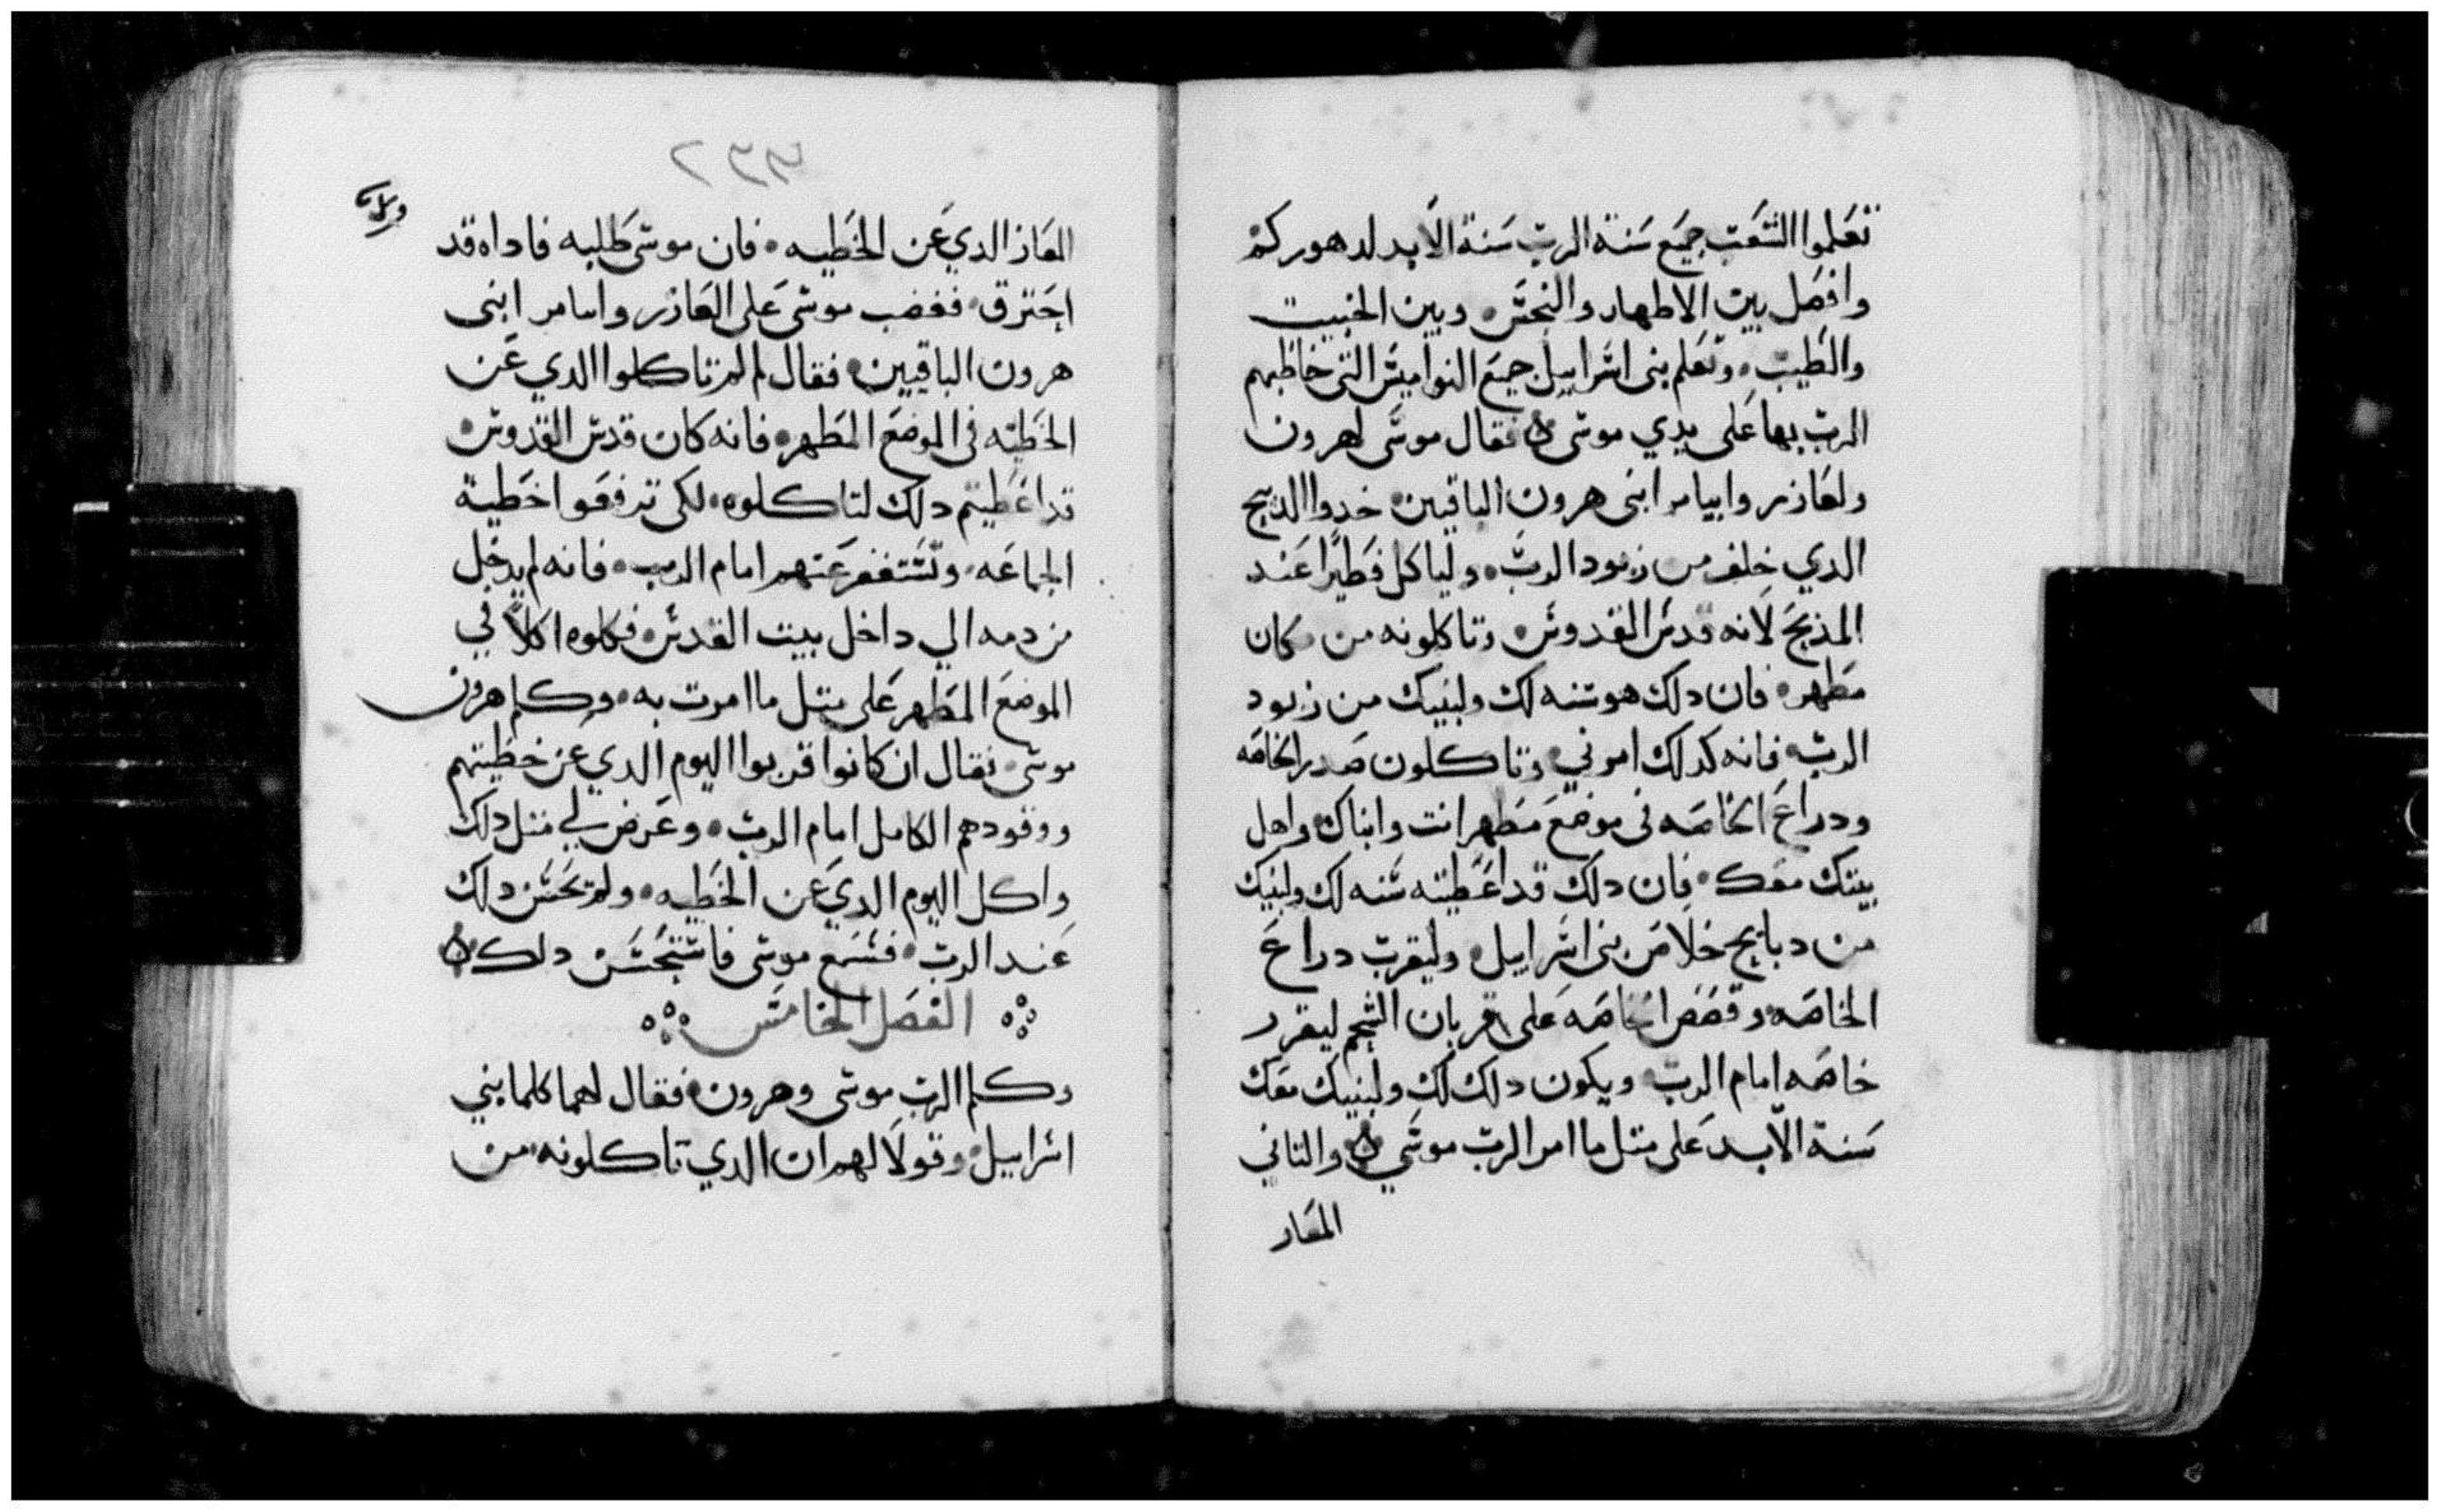 تعلموا الشعب جميع سنة الرب سنة الابد لدهوركم
وافصل بين الاطهار والنجس وبين الخبيت
والطيب وتعلم بنى اسراييل جميع النواميس التى خاطبهم
الرب بها على يدي موسى فقال موسى لهرون
ولعازر وايتامر ابنى هرون الباقيين خدوا الدبيح
الدي خلف من زبود الرب ولياكل فطيرا عند
المذبح لانه قدس القدوس وتاكلونه من مكان
مطهر فان دلك هو سنه لك ولبنيك من زبود
الرب فانه كدلك امرني وتاكلون صدر الخاصه
ودراع الخاصه فى موضع مطهر انت وابناك واهل
بيتك معك فان دلك قد اعطيته سنه لك ولبنيك
من دبايح خلاص بنى اسراييل وليقرب دراع
الخاصه وقصص الخاصه على قربان الشحم ليفرر
خاصه امام الرب ويكون دلك لك ولبنيك معك
سنة الابد على متل ما امر الرب موسى والتاني
المعاز
٢٣٣
المعاز الدي عن الخطيه فان موسى طلبه فاداه قد
احترق فغضب موسى على العازر وايتامر ابنى
هرون الباقيين فقال لم لم تاكلوا الدي عن
الخطيه فى الموضع المطهر فانه كان قدس القدوس
قد اعطيتم دلك لتاكلوه لكى ترفعوا خطية
الجماعه وتستغفر عنهم امام الرب فانه لم يدخل
من دمه الي داخل بيت القدس فكلوه اكلا في
الموضع المطهر على متل ما امرت به وكلم هرون
موسى فقال ان كانوا قربوا اليوم الدي عن خطيتهم
ووقودهم الكامل امام الرب وعرض لي متل دلك
واكل اليوم الدي عن الخطيه ولم يحسن دلك
عند الرب فسمع موسى فاستحسن دلك
الفصل الخامس
وكلم الرب موسى وهرون فقال لهما كلما بني
اسراييل وقولا لهم ان الدي تاكلونه من